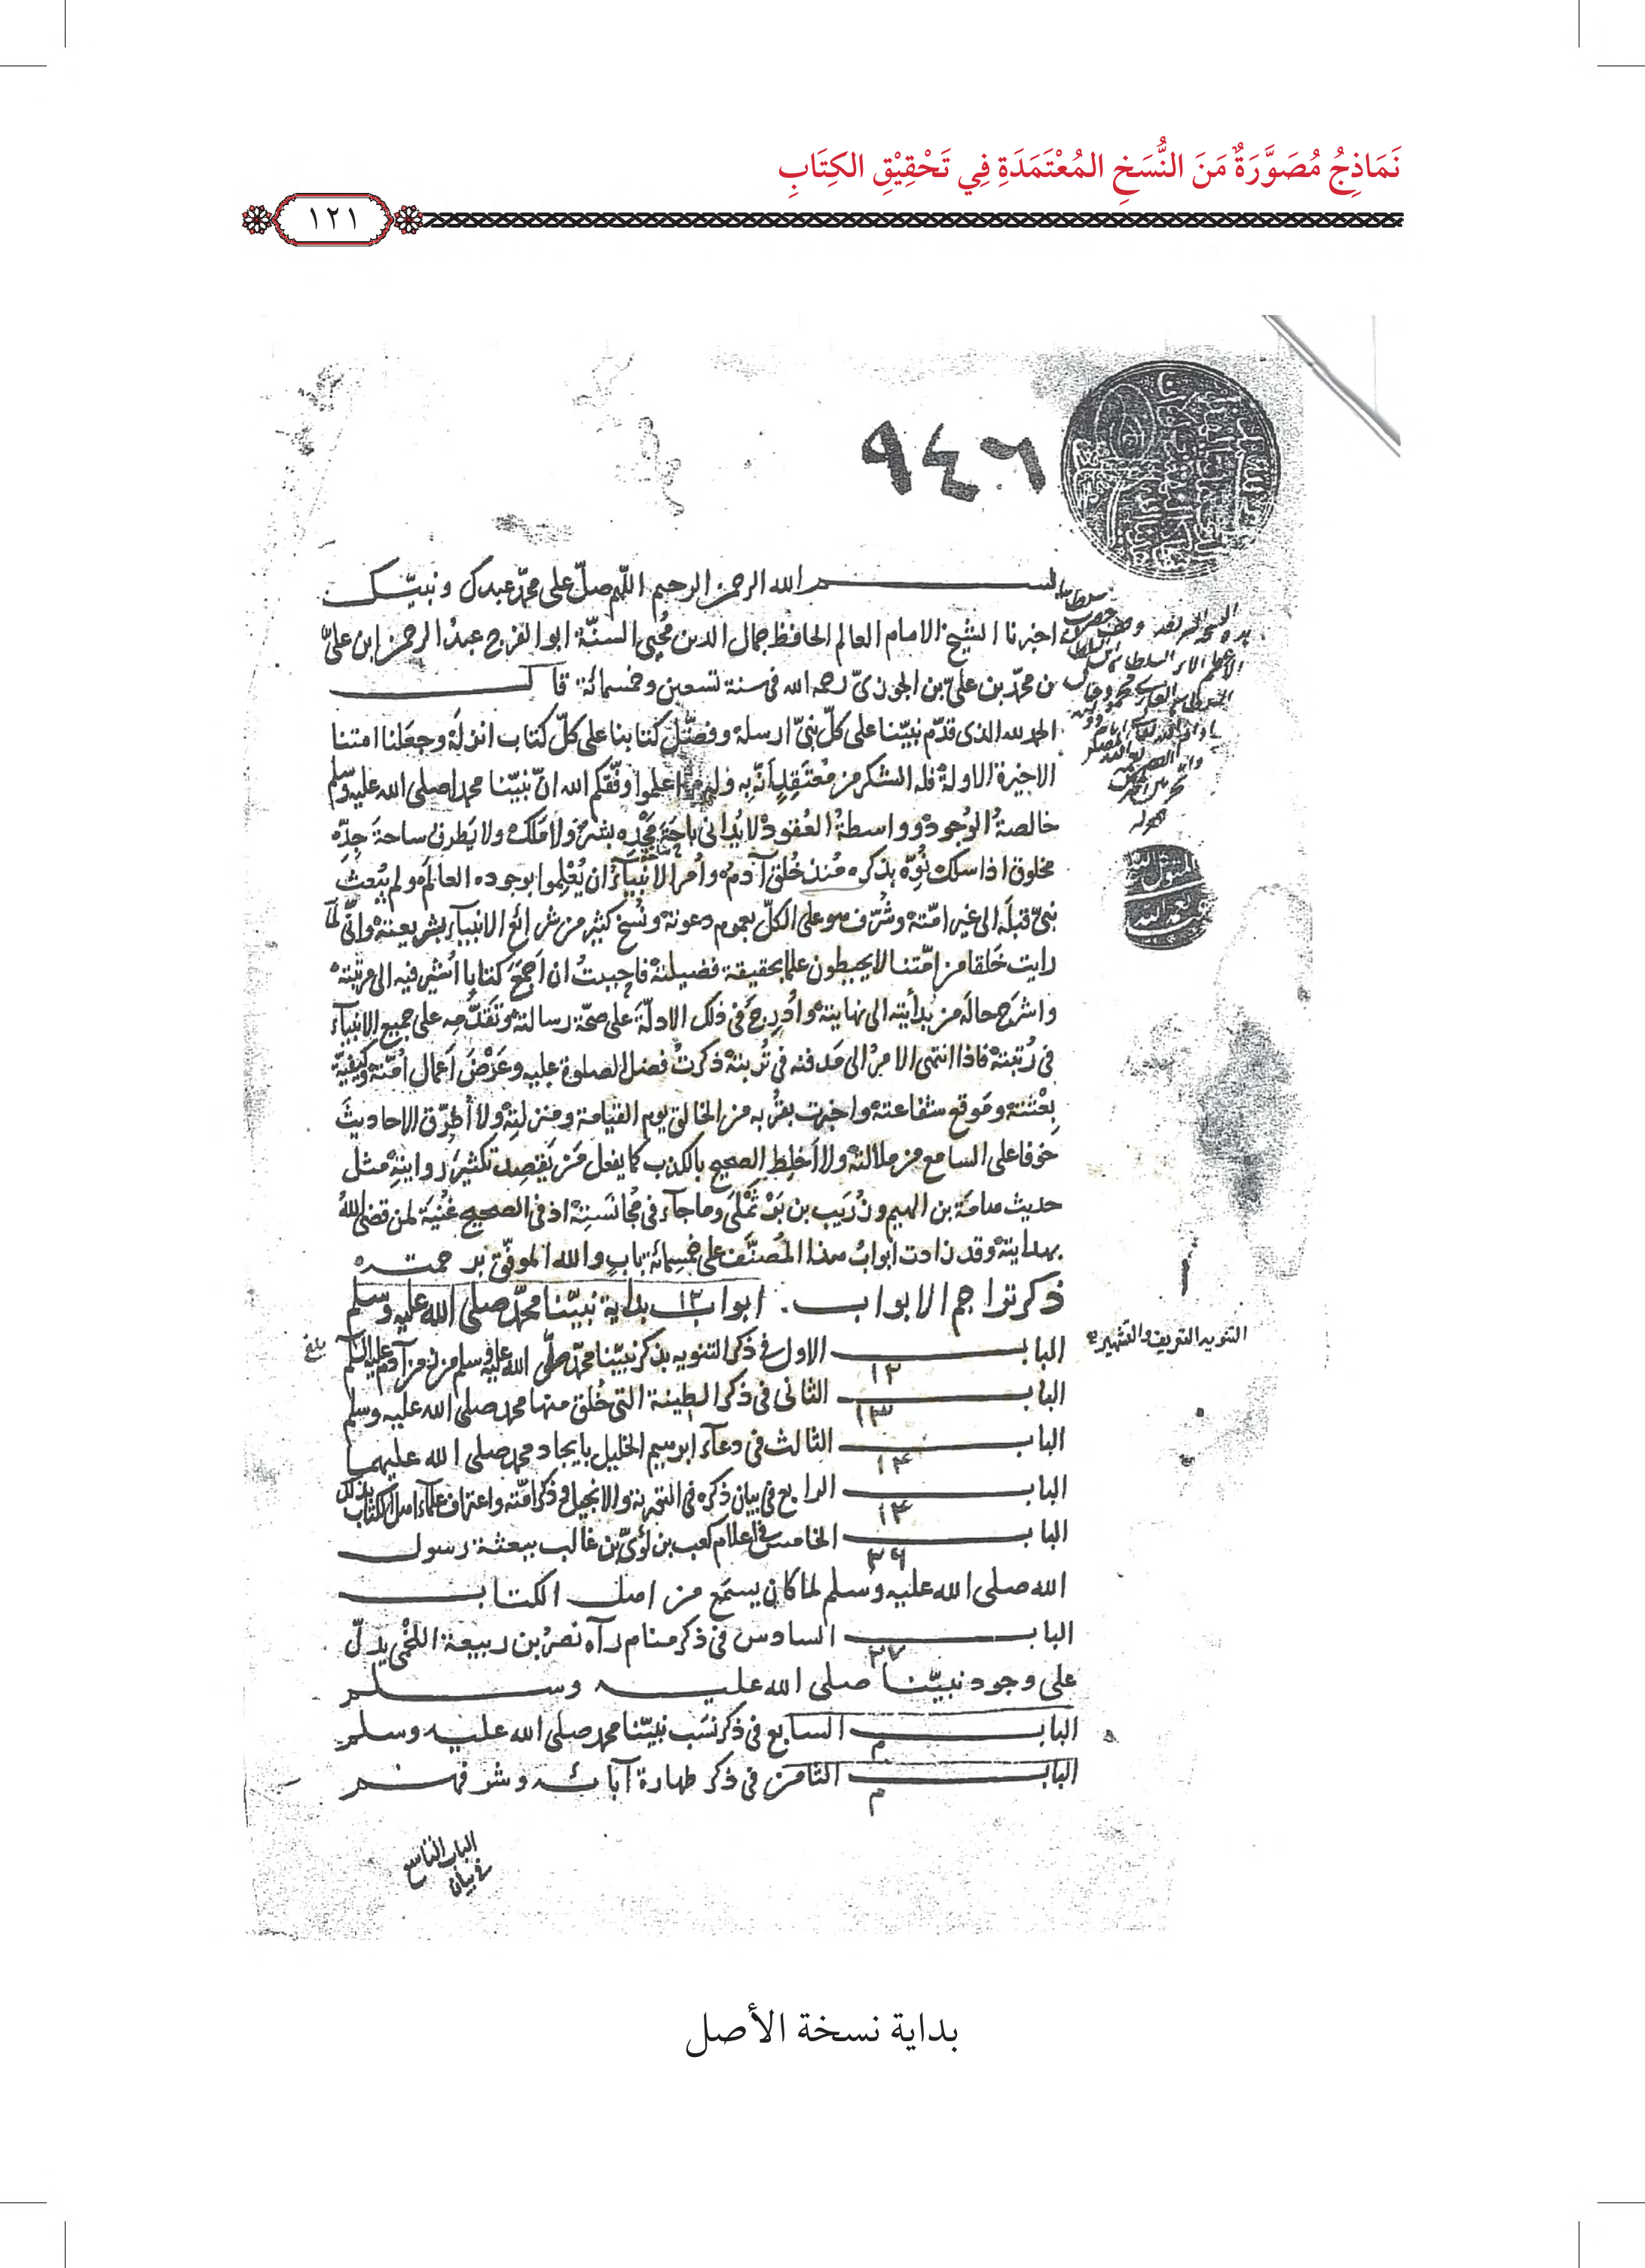 نَمَاذِجُ مُصَوَّرَةٌ مَنَ النُّسَخِ المُعْتَمَدَةِ فِي تَحْقِيْقِ الكِتَابِ
١٢١
٩٤٦
بسم الله الرحمن الرحيم اللهم صلّ على محمد عبدك ونبيّك
اخبرنا الشيخ الامام العالم الحافظ جمال الدين مُحيى السنّة ابو الفرج عبدُ الرحمن ابن علىّ
بن محمّد بن علىّ بن الجوزىّ رحمه الله فى سنة تسعين وخمسمائة قال
الحمد لله الذى قدّم نبيّنا على كلّ نبىّ ارسله وفضّل كتابنا على كلّ كتاب انزله وجعلنا امتنا
الاخيرة الاولة فله الشكر من مُعتَقِدٍ أنّه به وله اعلموا وفّقكم الله انّ نبيّنا محمدا صلى الله عليه وسلم
خالصةُ الوُجود وواسطةُ العُقود لا يُدانى باحَةَ مَجْدِه بشرٌ ولا مَلَك ولا يَطرق ساحةَ جِدِّه
مخلوق اذا سلك نُوّه بذكره مُنذ خُلق آدم وأُمر الانبيآءُ ان يُعْلِموا بوجوده العالَم ولم يُبعث
نبىّ قبلَه الى غير امّته وشُرّف هو على الكلّ بعموم دعوته ونُسخ كثير من شرائع الانبيآء بشريعته وانّى لمّا
رايت خَلقا من امّتنا لا يحيطون علما بحقيقة فضيلته فاحببتُ ان اَجمَعَ كتابا اُشير فيه الى مرتبته
واشرَح حالَه من بدأيته الى نهايته واُدرِجَ فى ذلك الادلّة على صحّة رسالته وتَقَدُّمِه على جميع الانبيآء
فى رُتبته فاذا انتهى الامرُ الى مَدفنه فى تُربته ذكرتُ فضل الصلوة عليه وعَرْضَ اَعمال اُمّته وكيفيّة
بِعْثته ومَوقع شفاعته واخبرت بقُربه من الخالق يوم القيامة ومنزلته ولا أطرّق الاحاديثَ
خوفا على السامع من ملالته ولا أخلِط الصحيح بالكذب كما يفعل مَن يَقصد تكثيرَ روايته مثل
حديث هامَة بن الهيم وزُرَيب بن بَرْثَمْلَى وما جآء فى مُجانَسته اذ فى الصحيح غُنيَة لمن قضى اللهُ
بهدايته وقد زادت ابوابُ هذا المُصنَّف على خمسمائة باب والله الموفّق برحمته
ذكر تراجم الابواب. ابواب بداية نبيّنا محمّد صلى الله عليه وسلم
١٢
الباب الاول فى ذكر التنويه بذكر نبيّنا محمّد صلّى الله عليه وسلم من زمن آدم عليه السلم
بلغ
التنويه التعريف والتشهير به
١٢
الباب الثانى فى ذكر الطينة التى خُلق منها محمد صلى الله عليه وسلم
١٣
الباب الثالث فى دعآء ابرهيم الخليل بايجاد محمد صلى الله عليهما
١٤
الباب الرابع فى بيان ذكره فى التورية والانجيل وذكر امّته واعتراف علمآء اهل الكتاب بذلك
١٤
الباب الخامس فى اعلام كعب بن لُؤىّ بن غالب ببعثة رسول
٢٦
الله صلى الله عليه وسلم لما كان يسمَع من اهل الكتاب
الباب السادس فى ذكر منام رآه نصرُ بن ربيعة اللخْمى يدلّ
٢٧
على وجود نبيّنا صلى الله عليه وسلم
الباب السابع فى ذكر نسَب نبيّنا محمد صلى الله عليه وسلم
الباب الثامن فى ذكر طهارة آبائه وشرفهم
الباب التاسع
فى بيان
بداية نسخة الأصل